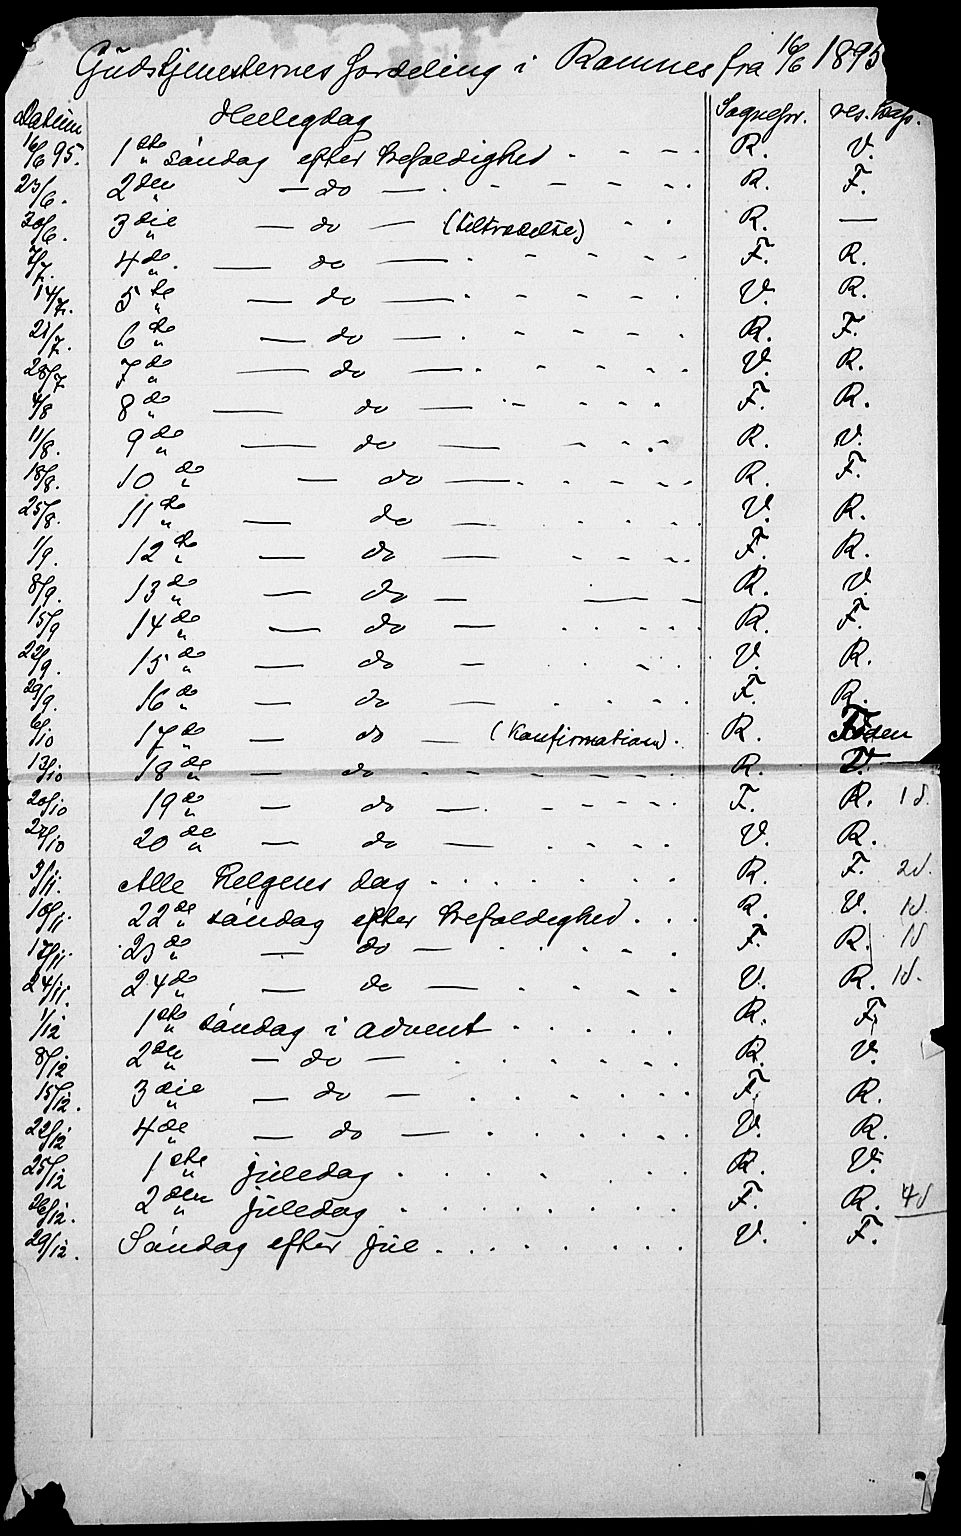 Gudstjenesternes fordeling i Ramnes fra 16/6 1895
Datum Helligdag Sognepr. res. kap.
16/6 95. 1ste søndag efter trefoldighed . - - - R. V.
23/6. 2den — do — . - - - - . R. F.
30/6. 3die — do — (tiltrædelse) - - R. —
7/7. 4de — do — . - - - - - F. R.
14/7. 5te — do — . - - - - . V. R.
21/7. 6te — do — . - - - - . R. F.
28/7 7de — do — . - - - - - V. R.
4/8 8de — do — . - - - - - F. R.
11/8. 9de — do — - - . - R. V.
18/8. 10de — do — . - - - - . R. F.
25/8. 11te — do — . . . . V. R.
1/9. 12te — do — . - . - - F. R.
8/9. 13de — do — — R. V
15/9 14de — do — . . . . . R. F.
22/9. 15de — do — . - . V. R.
29/9. 16de — do — . - . . . F. R.
6/10 17de — do — (Konfirmation) . R.
13/10 18de — do - - - - - - R. V.
20/10 19de — do — . - - - - - F. R. 1 d.
27/10 20de — do — . . - - . V. R.
3/11. Alle Helgens dag . . . . . . . . R. F. 2d.
10/11. 22de søndag efter trefoldighed . . . R. V. 1d.
17/11. 23de — do — . . . . . F. R. 1d
24/11. 24de — do — . . . . V. R. 1d.
1/12 1ste søndag i advent . . . . . R. F.
8/12 2den — do — . . . . . . R. V.
15/12. 3die — do — . . . . . . F. R.
22/12 4de — do — . . . . . . V. R.
25/12 1ste juledag . . . . . . R. V.
26/12. 2den juledag . . . . . . . . F. R. 4d
29/12. Søndag efter jul . . . . . . . . V. F.